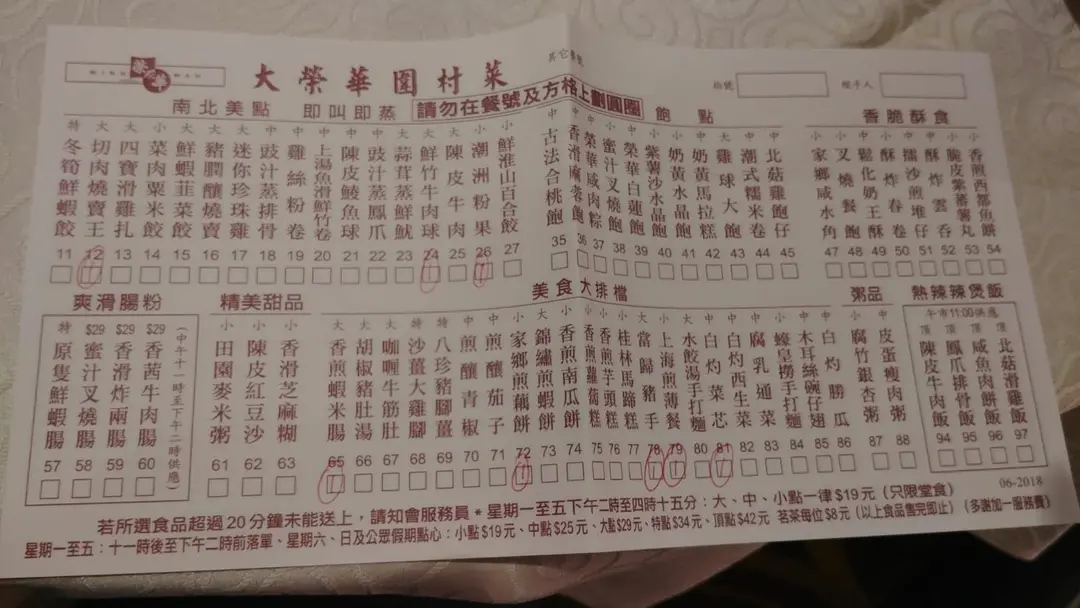 大榮華圍村菜
其它
枱號
經手人
南北美點 即叫即蒸 請勿在餐號及方格上劃圓圈 飽點 香脆酥食
特 冬筍鮮蝦餃 11
大 切肉燒賣王 12
大 四寶滑雞扎 13
小 菜肉粟米餃 14
大 鮮蝦韮菜餃 15
大 豬膶釀燒賣 16
大 迷你珍珠雞 17
中 豉汁蒸排骨 18
中 雞絲粉卷 19
中 上湯魚滑鮮竹卷 20
中 陳皮鯪魚球 21
中 豉汁蒸鳳爪 22
大 蒜茸蒸鮮魷 23
中 鮮竹牛肉球 24
大 陳皮牛肉 25
小 潮洲粉果 26
小 鮮淮山百合餃 27
中 古法合桃飽 35
中 香滑麻蓉飽 36
中 榮華咸肉粽 37
小 蜜汁叉燒飽 38
中 榮華白蓮飽 39
小 紫薯沙水晶飽 40
小 奶黃水晶飽 41
中 奶黃馬拉糕 42
大 雞球大飽 43
中 潮式糯米卷 44
中 北菇雞飽仔 45
小 家鄉咸水角 47
小 叉燒餐飽 48
中 鬆化奶王酥 49
小 酥炸春卷 50
小 擂沙煎堆仔 51
中 酥炸雲吞 52
小 脆皮紫蕃薯丸 53
小 香煎西都魚餅 54
爽滑腸粉 精美甜品 美食大排檔 粥品 熱辣辣煲飯
特 原隻鮮蝦腸 57
$29 蜜汁叉燒腸 58
$29 香滑炸兩腸 59
$29 香茜牛肉腸 60
(中午十一時至下午二時供應)
小 田園麥米粥 61
小 陳皮紅豆沙 62
小 香滑芝麻糊 63
大 香煎蝦米腸 65
大 胡椒豬肚湯 66
大 咖喱牛筋腩 67
大 沙薑大雞腳 68
大 八珍豬腳薑 69
中 煎釀青椒 70
中 煎釀茄子 71
小 家鄉煎藕餅 72
大 錦繡煎蝦餅 73
小 香煎南瓜餅 74
小 香煎蘿蔔糕 75
小 香煎芋頭糕 76
小 桂林馬蹄糕 77
大 當歸豬手 78
小 上海煎薄餐 79
大 水餃湯手打麵 80
中 白灼菜芯 81
中 白灼西生菜 82
大 腐乳通菜 83
小 蠔皇撈手打麵 84
中 木耳絲碗仔翅 85
中 白灼勝瓜 86
小 腐竹銀杏粥 87
中 皮蛋瘦肉粥 88
午市11:00供應
頂 陳皮牛肉飯 94
頂 鳳爪排骨飯 95
頂 咸魚肉餅飯 96
頂 北菇滑雞飯 97
06-2018
若所選食品超過20分鐘未能送上,請知會服務員 * 星期一至五下午二時至四時十五分:大、中、小點一律$19元(只限堂食)
星期一至五:十一時後至下午二時前落單、星期六、日及公眾假期點心:小點$19元、中點$25元、大點$29元、特點$34元、頂點$42元 茗茶每位$8元(以上食品售完即止) (多謝加一服務費)